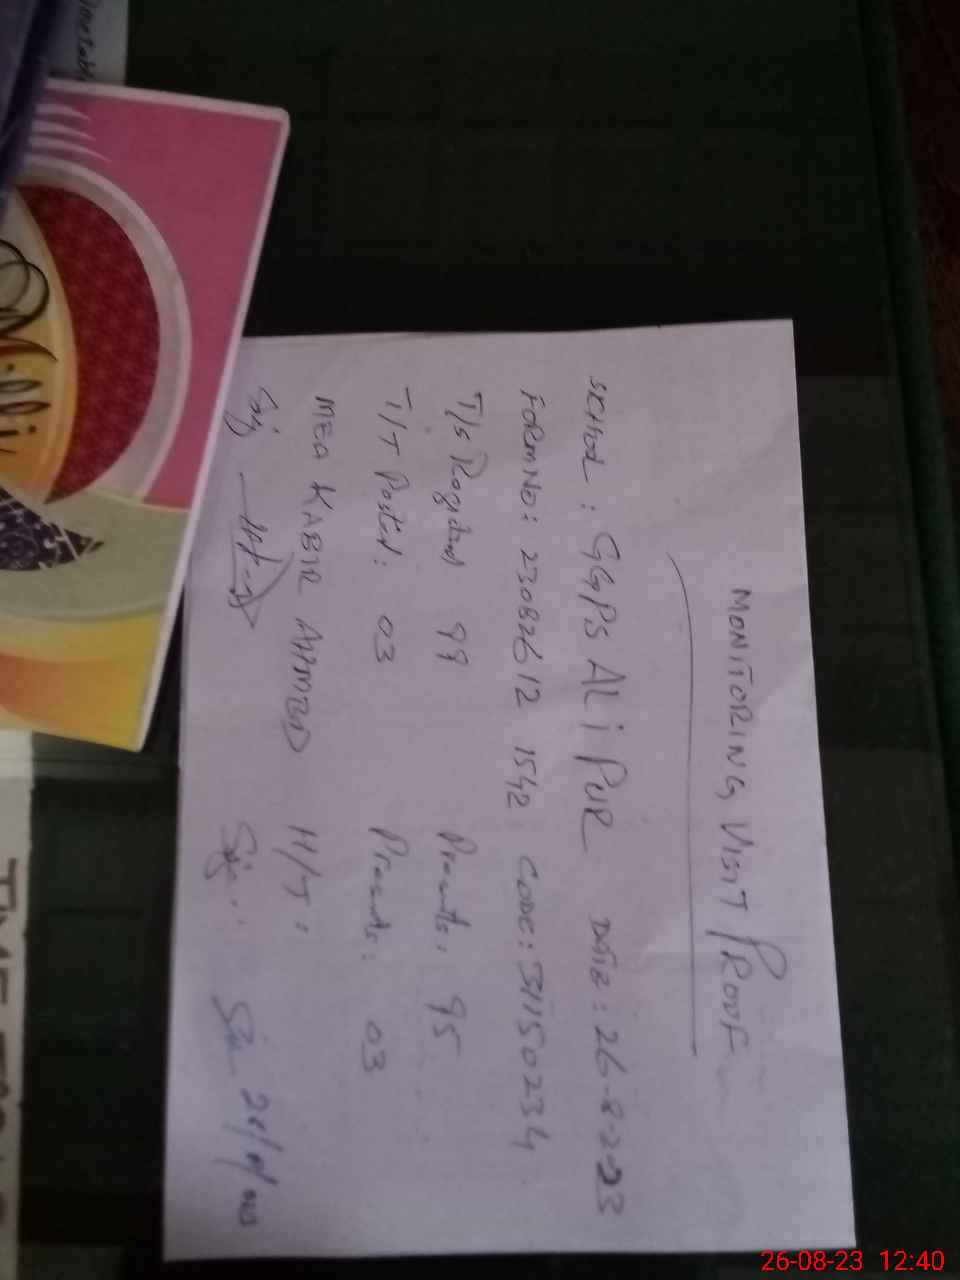 MONITORING VISIT PROOF
SCHOOL : GGPS ALi PUR DATE : 26-8-2023
FORM NO: 230826 12 1542 CODE: 31150234
T/S Regstred 99 Presents: 95
T/T Posted: 03 Presents: 03
MEA KABIR AHMED H/T:
Sig Sig:
Milli
26-08-23 12:40